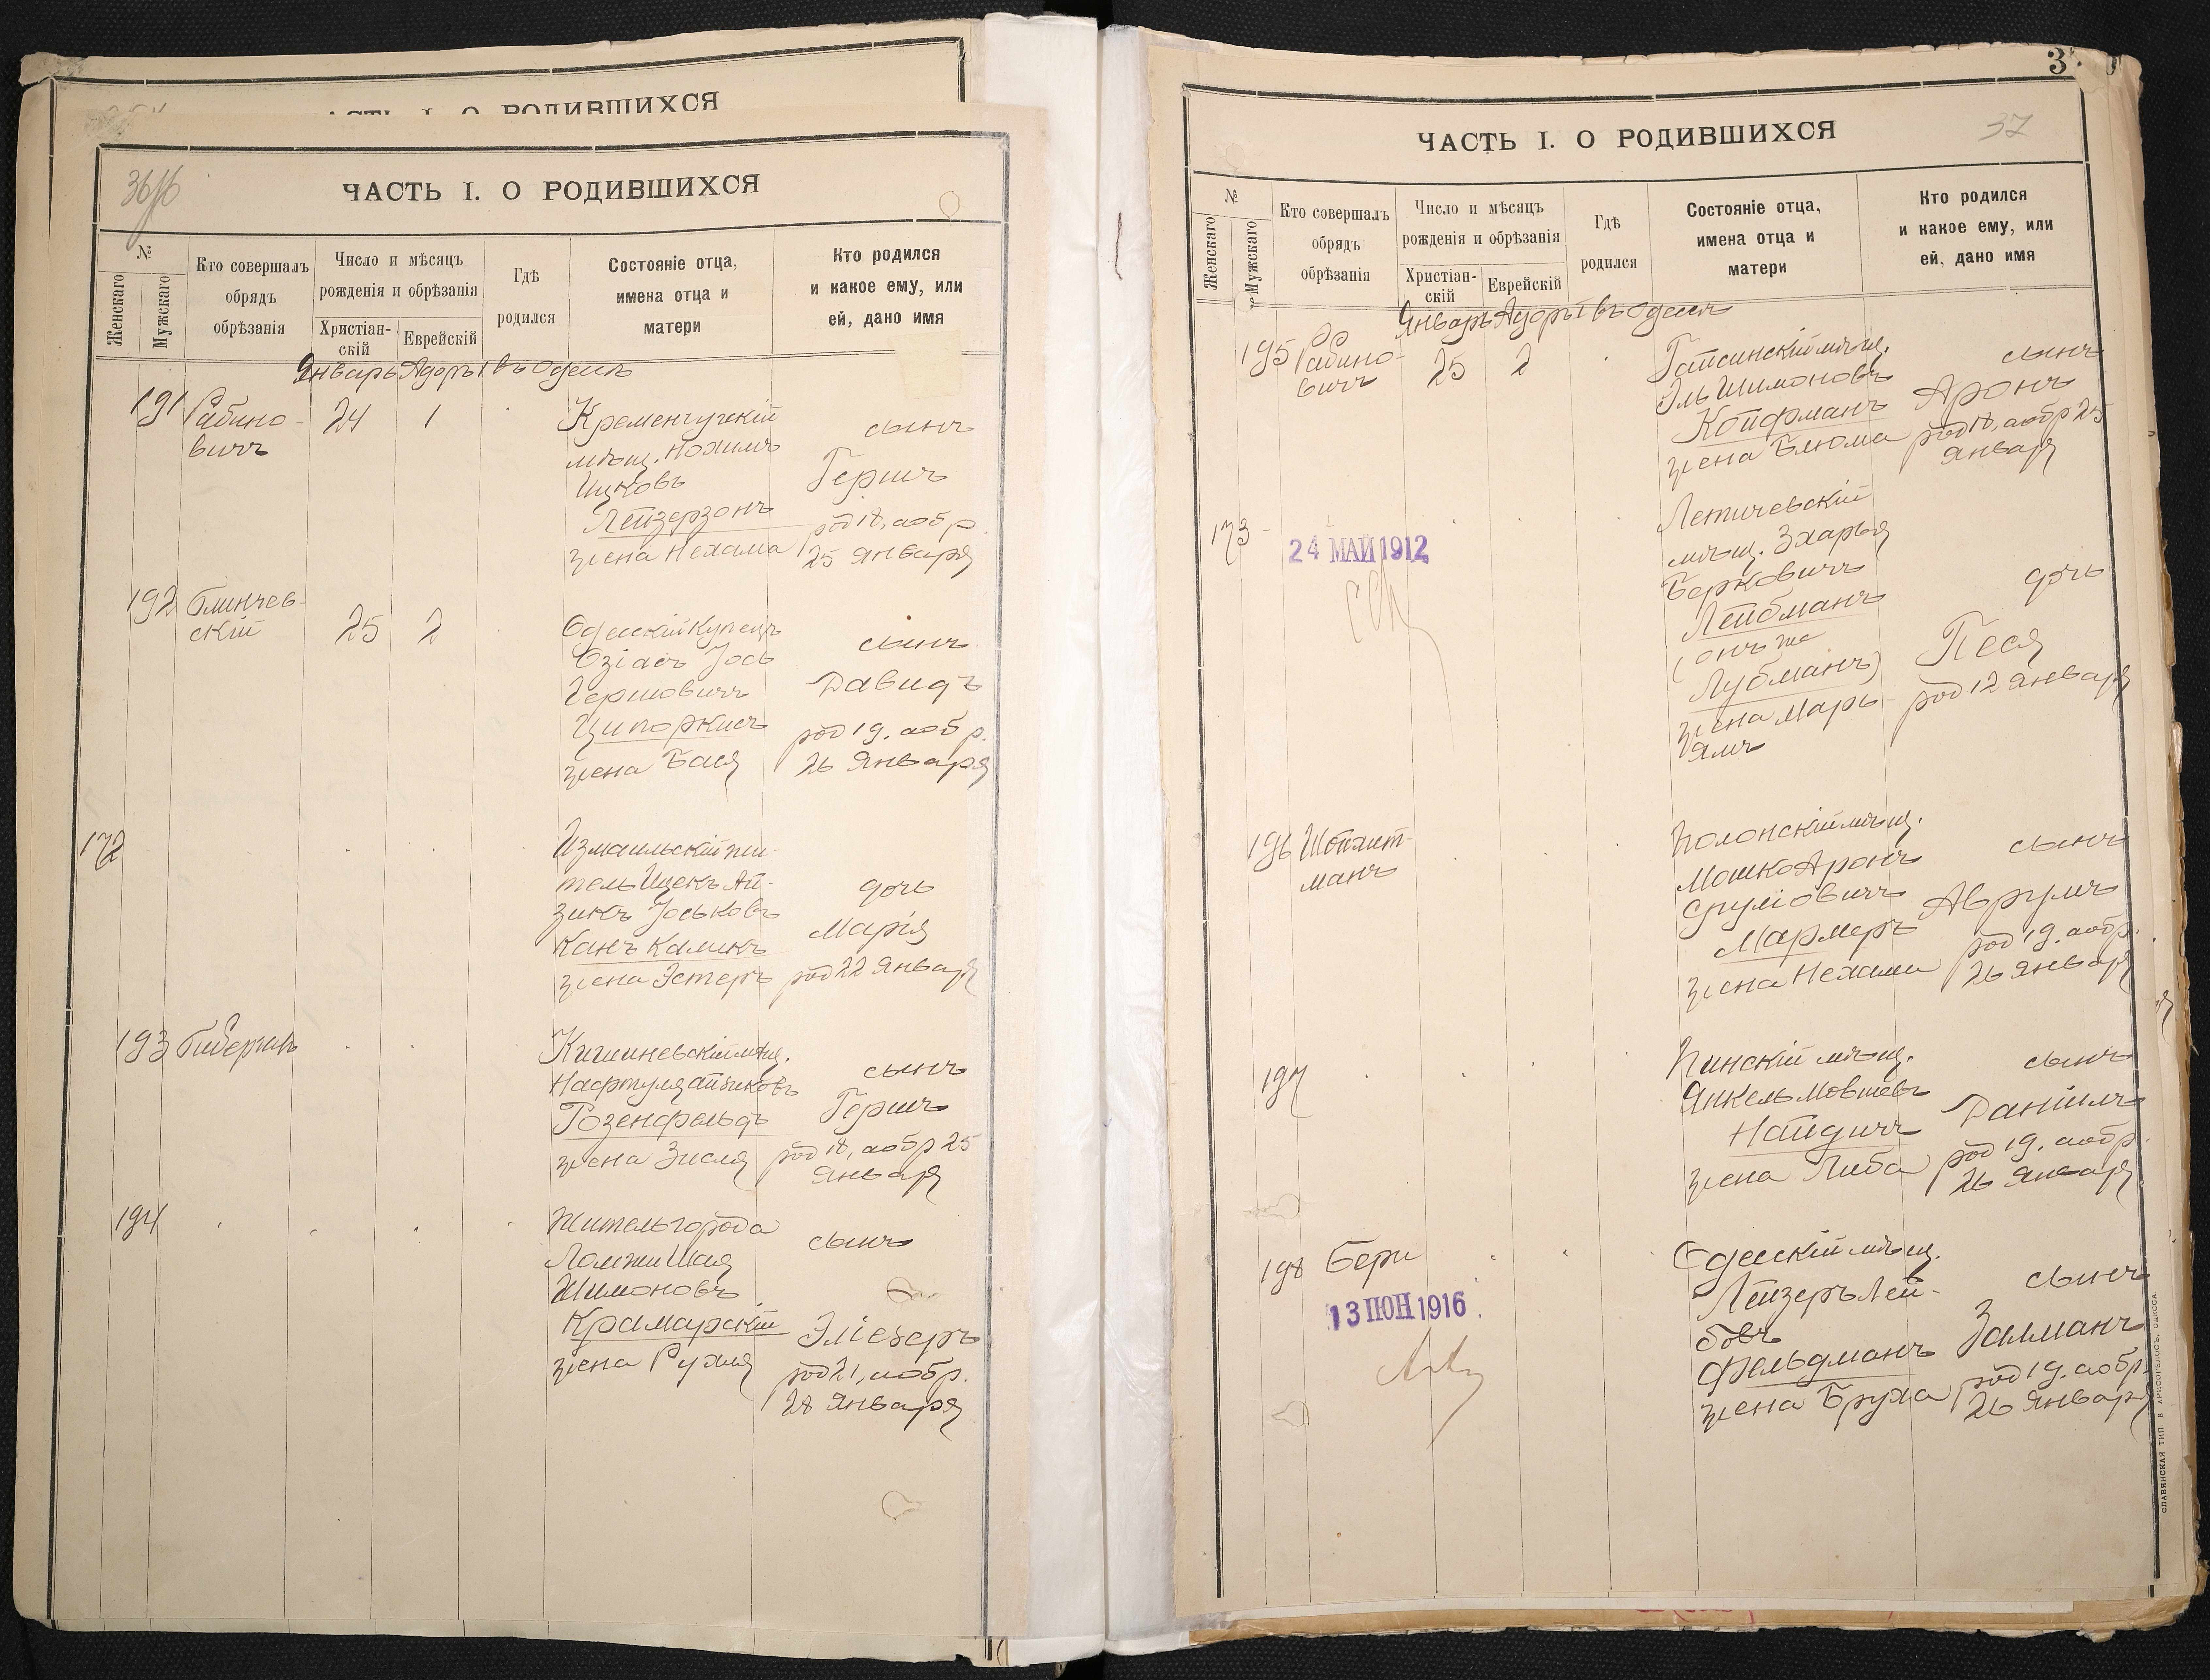 ЧАСТЬ I. О РОДИВШИХСЯ
36
ЧАСТЬ I. О РОДИВШИХСЯ
№
Женскаго
Мужскаго
Кто совершалъ
обрядъ
обрѣзанія
Число и мѣсяцъ
рожденія и обрѣзанія
Христіан-
скій
Еврейскій
Гдѣ
родился
Состояніе отца,
имена отца и
матери
Кто родился
и какое ему, или
ей, дано имя
Январь Адоръ I въ Одессѣ
191
Рабино-
вичъ
24
1
Кременчугскій
мѣщ. Нохимъ
Ицковъ
Лейзерзонъ
жена Нехама
сынъ
Гершъ
род 18, а обр
25 Января
192
Блинчев-
скій
25
2
Одесскій купецъ
Озіасъ Іось
Гершовичъ
Ципоркисъ
жена Бася
сынъ
Давидъ
род 19, а обр.
26 Января
172
Измаильскій жи-
тель Ицекъ Ай-
зикъ Іоськовъ
Канъ Каликъ
жена Эстеръ
дочь
Марія
род 22 Января
193
Гиберманъ
Кишиневскій мѣщ.
Нафтуля Айзиковъ
Розенфельдъ
жена Зисля
сынъ
Гершъ
род 18, а обр 25
Января
194
Житель города
Ломжи Шая
Шимоновъ
Крамарскій
жена Рухля
сынъ
Эліезеръ
род 21, а обр.
28 Января
3
37
ЧАСТЬ I. О РОДИВШИХСЯ
№
Женскаго
Мужскаго
Кто совершалъ
обрядъ
обрѣзанія
Число и мѣсяцъ
рожденія и обрѣзанія
Христіан-
скій
Еврейскій
Гдѣ
родился
Состояніе отца,
имена отца и
матери
Кто родился
и какое ему, или
ей, дано имя
Январь Адоръ I въ Одессѣ
195
Рабино-
вичъ
25
2
Гайсинскій мѣщ.
Эль Шимоновъ
Койфманъ
жена Блюма
сынъ
Аронъ
род 18, а обр 25
Января
173
24 МАЙ 1912
Летичевскій
мѣщ. Зхарья
Берковичъ
Лейбманъ
(онъ же
Лубманъ)
жена Марь-
ямъ
дочь
Песя
род 12 Января
196
Шойхит-
манъ
Полонскій мѣщ.
Мошко Аронъ
Сруліовичъ
Мармеръ
жена Нехама
сынъ
Аврумъ
род 19, а обр.
26 Января
197
Пинскій мѣщ.
Янкель Мовшевъ
Найдичъ
жена Либа
сынъ
Даніилъ
род 19, а обр.
26 Января
198
Бери
13 ІЮН 1916
Одесскій мѣщ.
Лейзеръ Лей-
бовъ
Фельдманъ
жена Бруха
сынъ
Залманъ
род 19, а обр.
26 Января
СЛАВЯНСКАЯ ТИП. Е. ХРИСОГЕЛОСЪ, ОДЕССА.